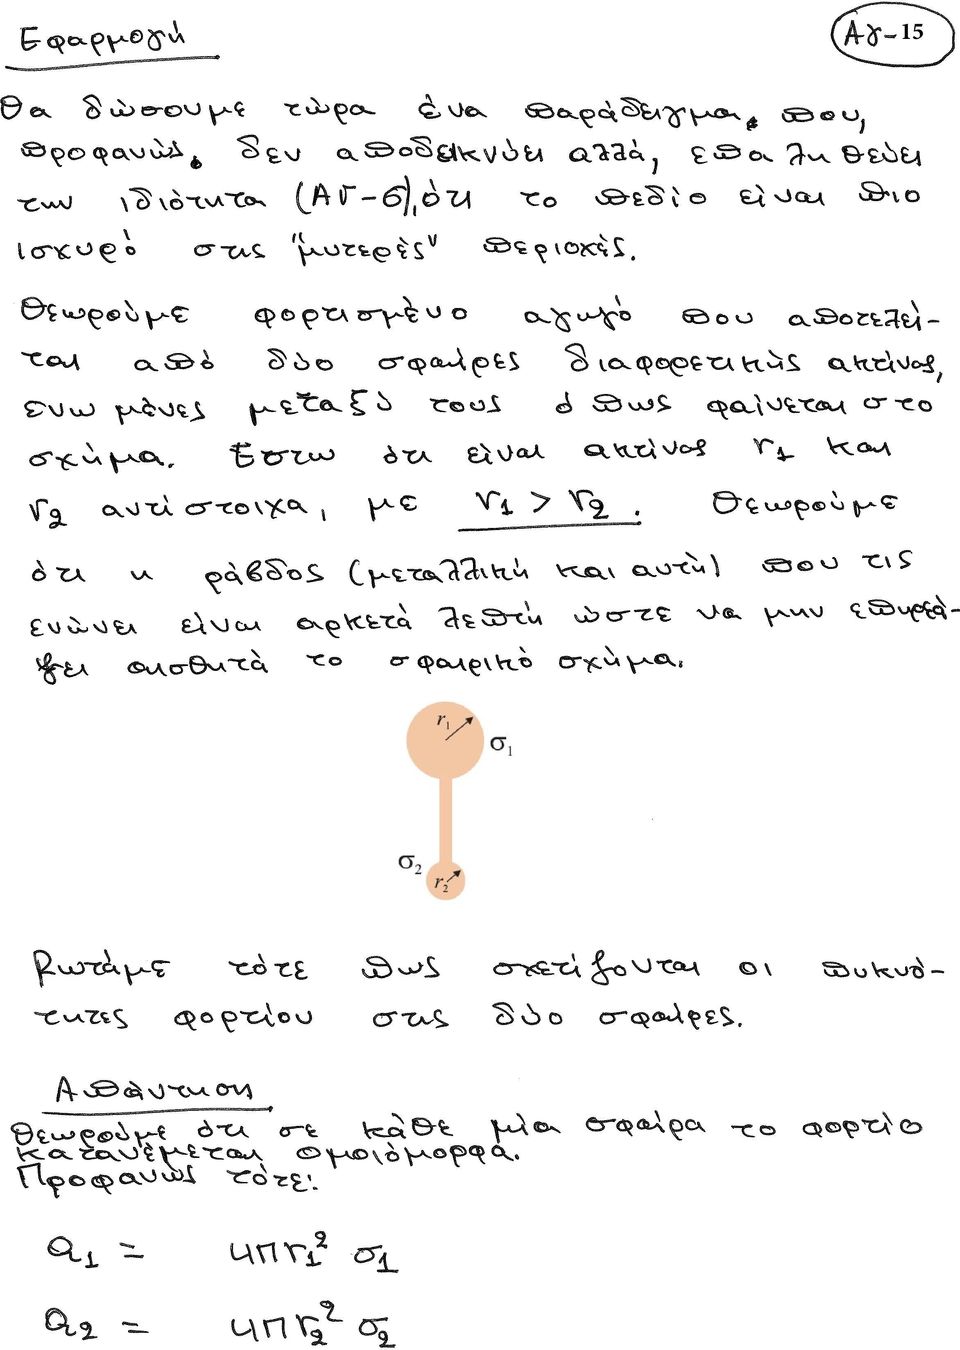 Εφαρμογή
Αγ-15
Θα δώσουμε τώρα ένα παράδειγμα, που,
προφανώς, δεν αποδεικνύει αλλά, επαληθεύει
την ιδιότητα (ΑΓ-6), ότι το πεδίο είναι πιο
ισχυρό στις "μυτερές" περιοχές.
Θεωρούμε φορτισμένο αγωγό που αποτελεί-
ται από δύο σφαίρες διαφορετικής ακτίνας,
ενωμένες μεταξύ τους όπως φαίνεται στο
σχήμα. Έστω ότι είναι ακτίνας r1 και
r2 αντίστοιχα, με r1 > r2. Θεωρούμε
ότι η ράβδος (μεταλλική και αυτή) που τις
ενώνει είναι αρκετά λεπτή ώστε να μην επηρεά-
ζει αισθητά το σφαιρικό σχήμα.
r1
σ1
σ2
r2
Ρωτάμε τότε πως σχετίζονται οι πυκνό-
τητες φορτίου στις δύο σφαίρες.
Απάντηση
Θεωρούμε ότι σε κάθε μία σφαίρα το φορτίο
κατανέμεται ομοιόμορφα.
Προφανώς τότε:
Q1 = 4πr1² σ1
Q2 = 4πr2² σ2